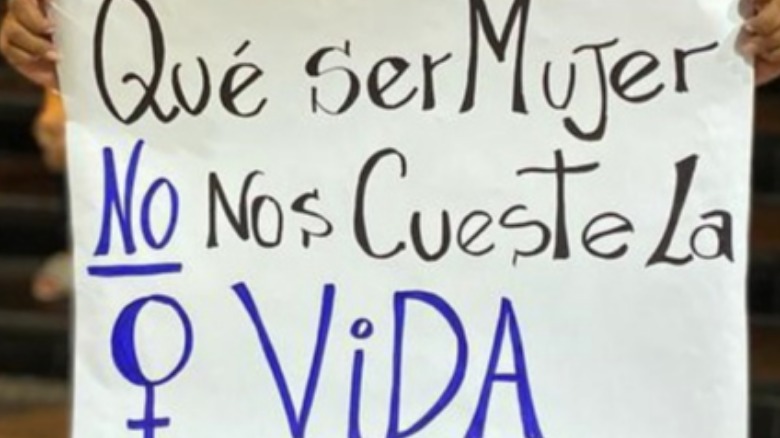 Qué Ser Mujer
NO Nos Cueste La
♀ ViDA